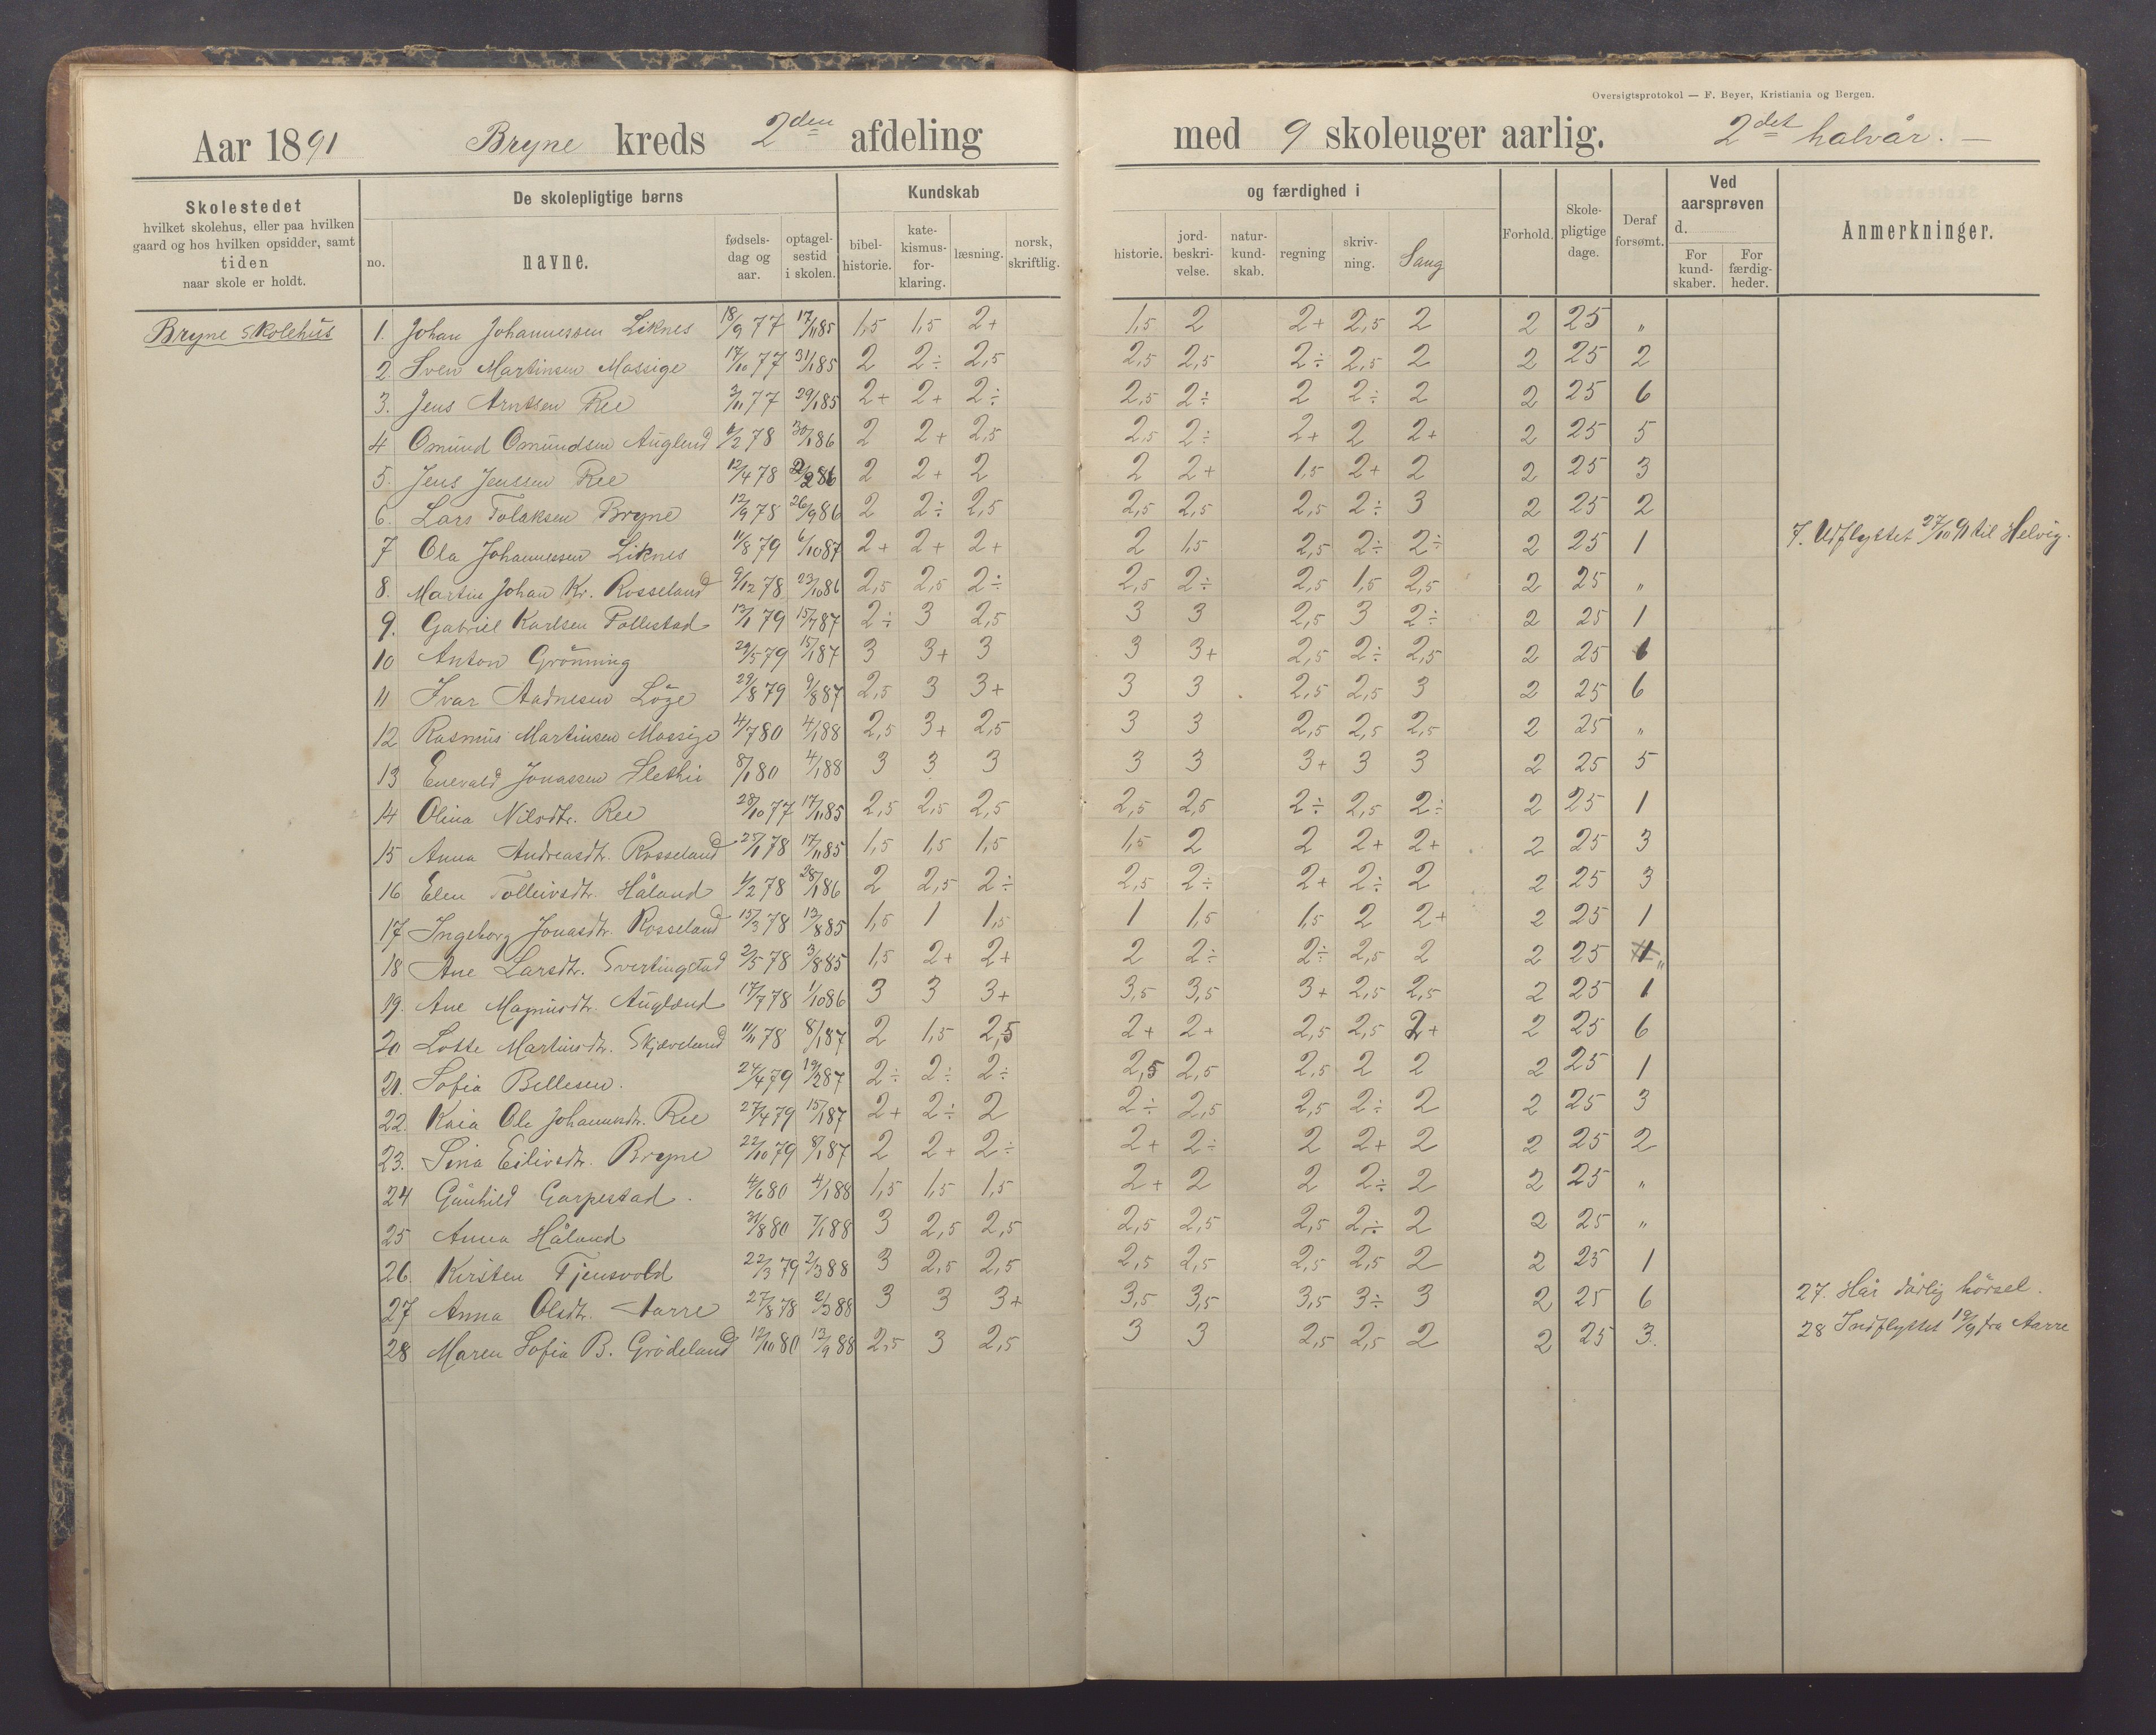 Oversigtsprotokol — F. Beyer, Kristiania og Bergen.
Aar 1891 Bryne kreds 2den afdeling med 9 skoleuger aarlig. 2det halvår. —
Skolestedet hvilket skolehus, eller paa hvilken gaard og hos hvilken opsidder, samt tiden naar skole er holdt.
De skolepligtige børns
no. navne. fødselsdag og aar. optagelsestid i skolen.
Kundskab og færdighed i
bibelhistorie. katekismusforklaring. læsning. norsk, skriftlig. historie. jordbeskrivelse. naturkundskab. regning skrivning. Sang
Forhold. Skolepligtige dage. Deraf forsømt. Ved aarsprøven d. For kundskaber. For færdigheder. Anmerkninger.
Bryne skolehus
1. Johan Johannessen Liknes 18/9 77 17/11 85 1,5 1,5 2+ 1,5 2 2+ 2,5 2 2 25 "
2. Sven Martinsen Mossige 17/10 77 31/1 85 2 2÷ 2,5 2,5 2,5 2÷ 2,5 2 2 25 2
3. Jens Arntsen Ree 2/11 77 29/1 85 2+ 2+ 2÷ 2,5 2÷ 2 2÷ 2 2 25 6
4 Omund Omundsen Auglend 6/2 78 30/1 86 2 2+ 2,5 2,5 2÷ 2+ 2 2+ 2 25 5
5. Jens Jenssen Ree 12/4 78 2 2+ 2 2 2+ 1,5 2+ 2 2 25 3
6. Lars Tolaksen Bryne 12/9 78 26/9 86 2 2÷ 2,5 2,5 2,5 2,5 2÷ 3 2 25 2
7 Ola Johannessen Liknes 11/8 79 6/10 87 2+ 2+ 2+ 2 1,5 2,5 2÷ 2÷ 2 25 1 7. Udflyttet 27/10 91 til Helvig.
8. Martin Johan Kr. Rosseland 9/12 78 23/10 86 2,5 2,5 2÷ 2,5 2÷ 2,5 1,5 2,5 2 25 "
9. Gabriel Karlsen Tollestad 13/1 79 15/1 87 2÷ 3 2,5 3 3 2,5 3 2÷ 2 25 1
10 Anton Grönning 29/5 79 15/1 87 3 3+ 3 3 3+ 2,5 2÷ 2,5 2 25
11 Ivar Aadnesen Löge 29/8 79 9/8 87 2,5 3 3+ 3 3 2,5 2,5 3 2 25 6
12 Rasmus Martinsen Mossige 4/7 80 4/1 88 2,5 3+ 2,5 3 3 2,5 2,5 2,5 2 25 "
13 Enevald Jonassen Slethei 8/1 80 4/1 88 3 3 3 3 3 3+ 3 3 2 25 5
14 Olina Nilsdtr. Ree 28/10 77 17/11 85 2,5 2,5 2,5 2,5 2,5 2÷ 2,5 2÷ 2 25 1
15 Anna Andreasdtr. Rosseland 25/1 78 17/11 85 1,5 1,5 1,5 1,5 2 2 2+ 2+ 2 25 3
16 Elen Tolleivsdtr. Håland 1/2 78 28/1 86 2 2,5 2÷ 2,5 2÷ 2+ 2÷ 2 2 25 3
17 Ingeborg Jonasdtr. Rosseland 15/3 78 13/8 85 1,5 1 1,5 1 1,5 1,5 2 2+ 2 25 1
18 Ane Larsdtr. Svertingstad 2/5 78 3/8 85 1,5 2+ 2+ 2 2÷ 2÷ 2,5 2 2 25 "
19. Ane Magnusdtr. Augland 17/7 78 1/10 86 3 3 3+ 3,5 3,5 3+ 2,5 2,5 2 25 1
20 Lotte Martinsdtr. Skjæveland 11/11 78 8/1 87 2 1,5 2,5 2+ 2+ 2,5 2,5 2+ 2 25 6
21. Sofia Bellesen. 24/4 79 19/2 87 2÷ 2÷ 2÷ 2,5 2,5 2,5 2 2 2 25 1
22. Kaia Ole Johannesdtr. Ree 27/4 79 15/1 87 2+ 2÷ 2 2÷ 2,5 2,5 2÷ 2 2 25 3
23. Sina Eilivsdtr. Bryne 22/10 79 8/1 87 2 2+ 2÷ 2+ 2÷ 2 2+ 2 2 25 2
24 Gunhild Garpestad. 4/6 80 4/1 88 1,5 1,5 1,5 2+ 2 2 2÷ 2 2 25 "
25 Anna Håland 31/8 80 7/1 88 3 2,5 2,5 2,5 2,5 2,5 2,÷ 2 2 25 "
26. Kirsten Tjensvold 22/3 79 2/3 88 3 2,5 2,5 2,5 2,5 2,5 2,5 2 2 25 1
27 Anna Olsdtr. Aarre 27/8 78 2/3 88 3 3 3+ 3,5 3,5 3,5 3÷ 3 2 25 6 27. Har dårlig hörsel.
28 Maren Sofia B. Grödeland 12/10 80 12/9 88 2,5 3 2,5 3 3 2,5 2,5 2 2 25 3. 28 Indflyttet 19/9 fra Aarre